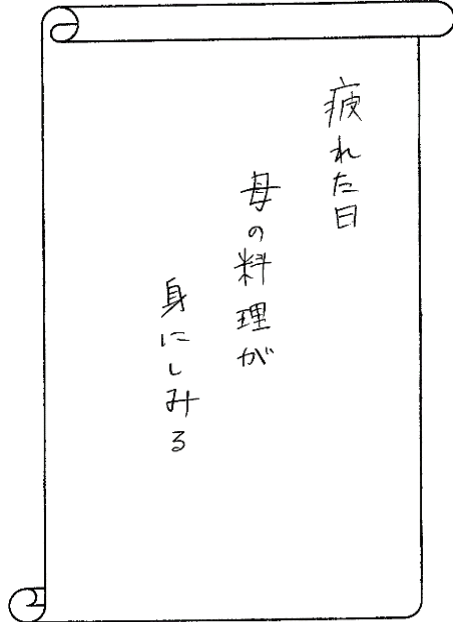 疲れた日
母の料理が
身にしみる